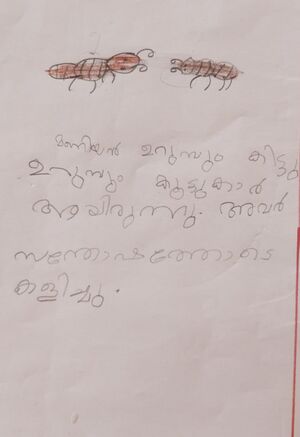 മണിയൻ ഉറുമ്പും കിട്ടു
ഉറുമ്പും കൂട്ടുകാർ
ആയിരുന്നു. അവർ
സന്തോഷത്തോടെ
കളിച്ചു.